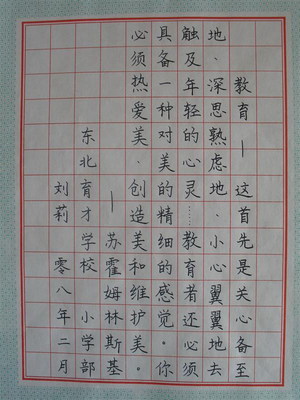 教育—这首先是关心备至
地、深思熟虑地、小心翼翼地去
触及年轻的心灵……教育者还必须
具备一种对美的精细的感觉。你
必须热爱美、创造美和维护美。
—苏霍姆林斯基
东北育才学校 小学部
刘莉 零八年二月